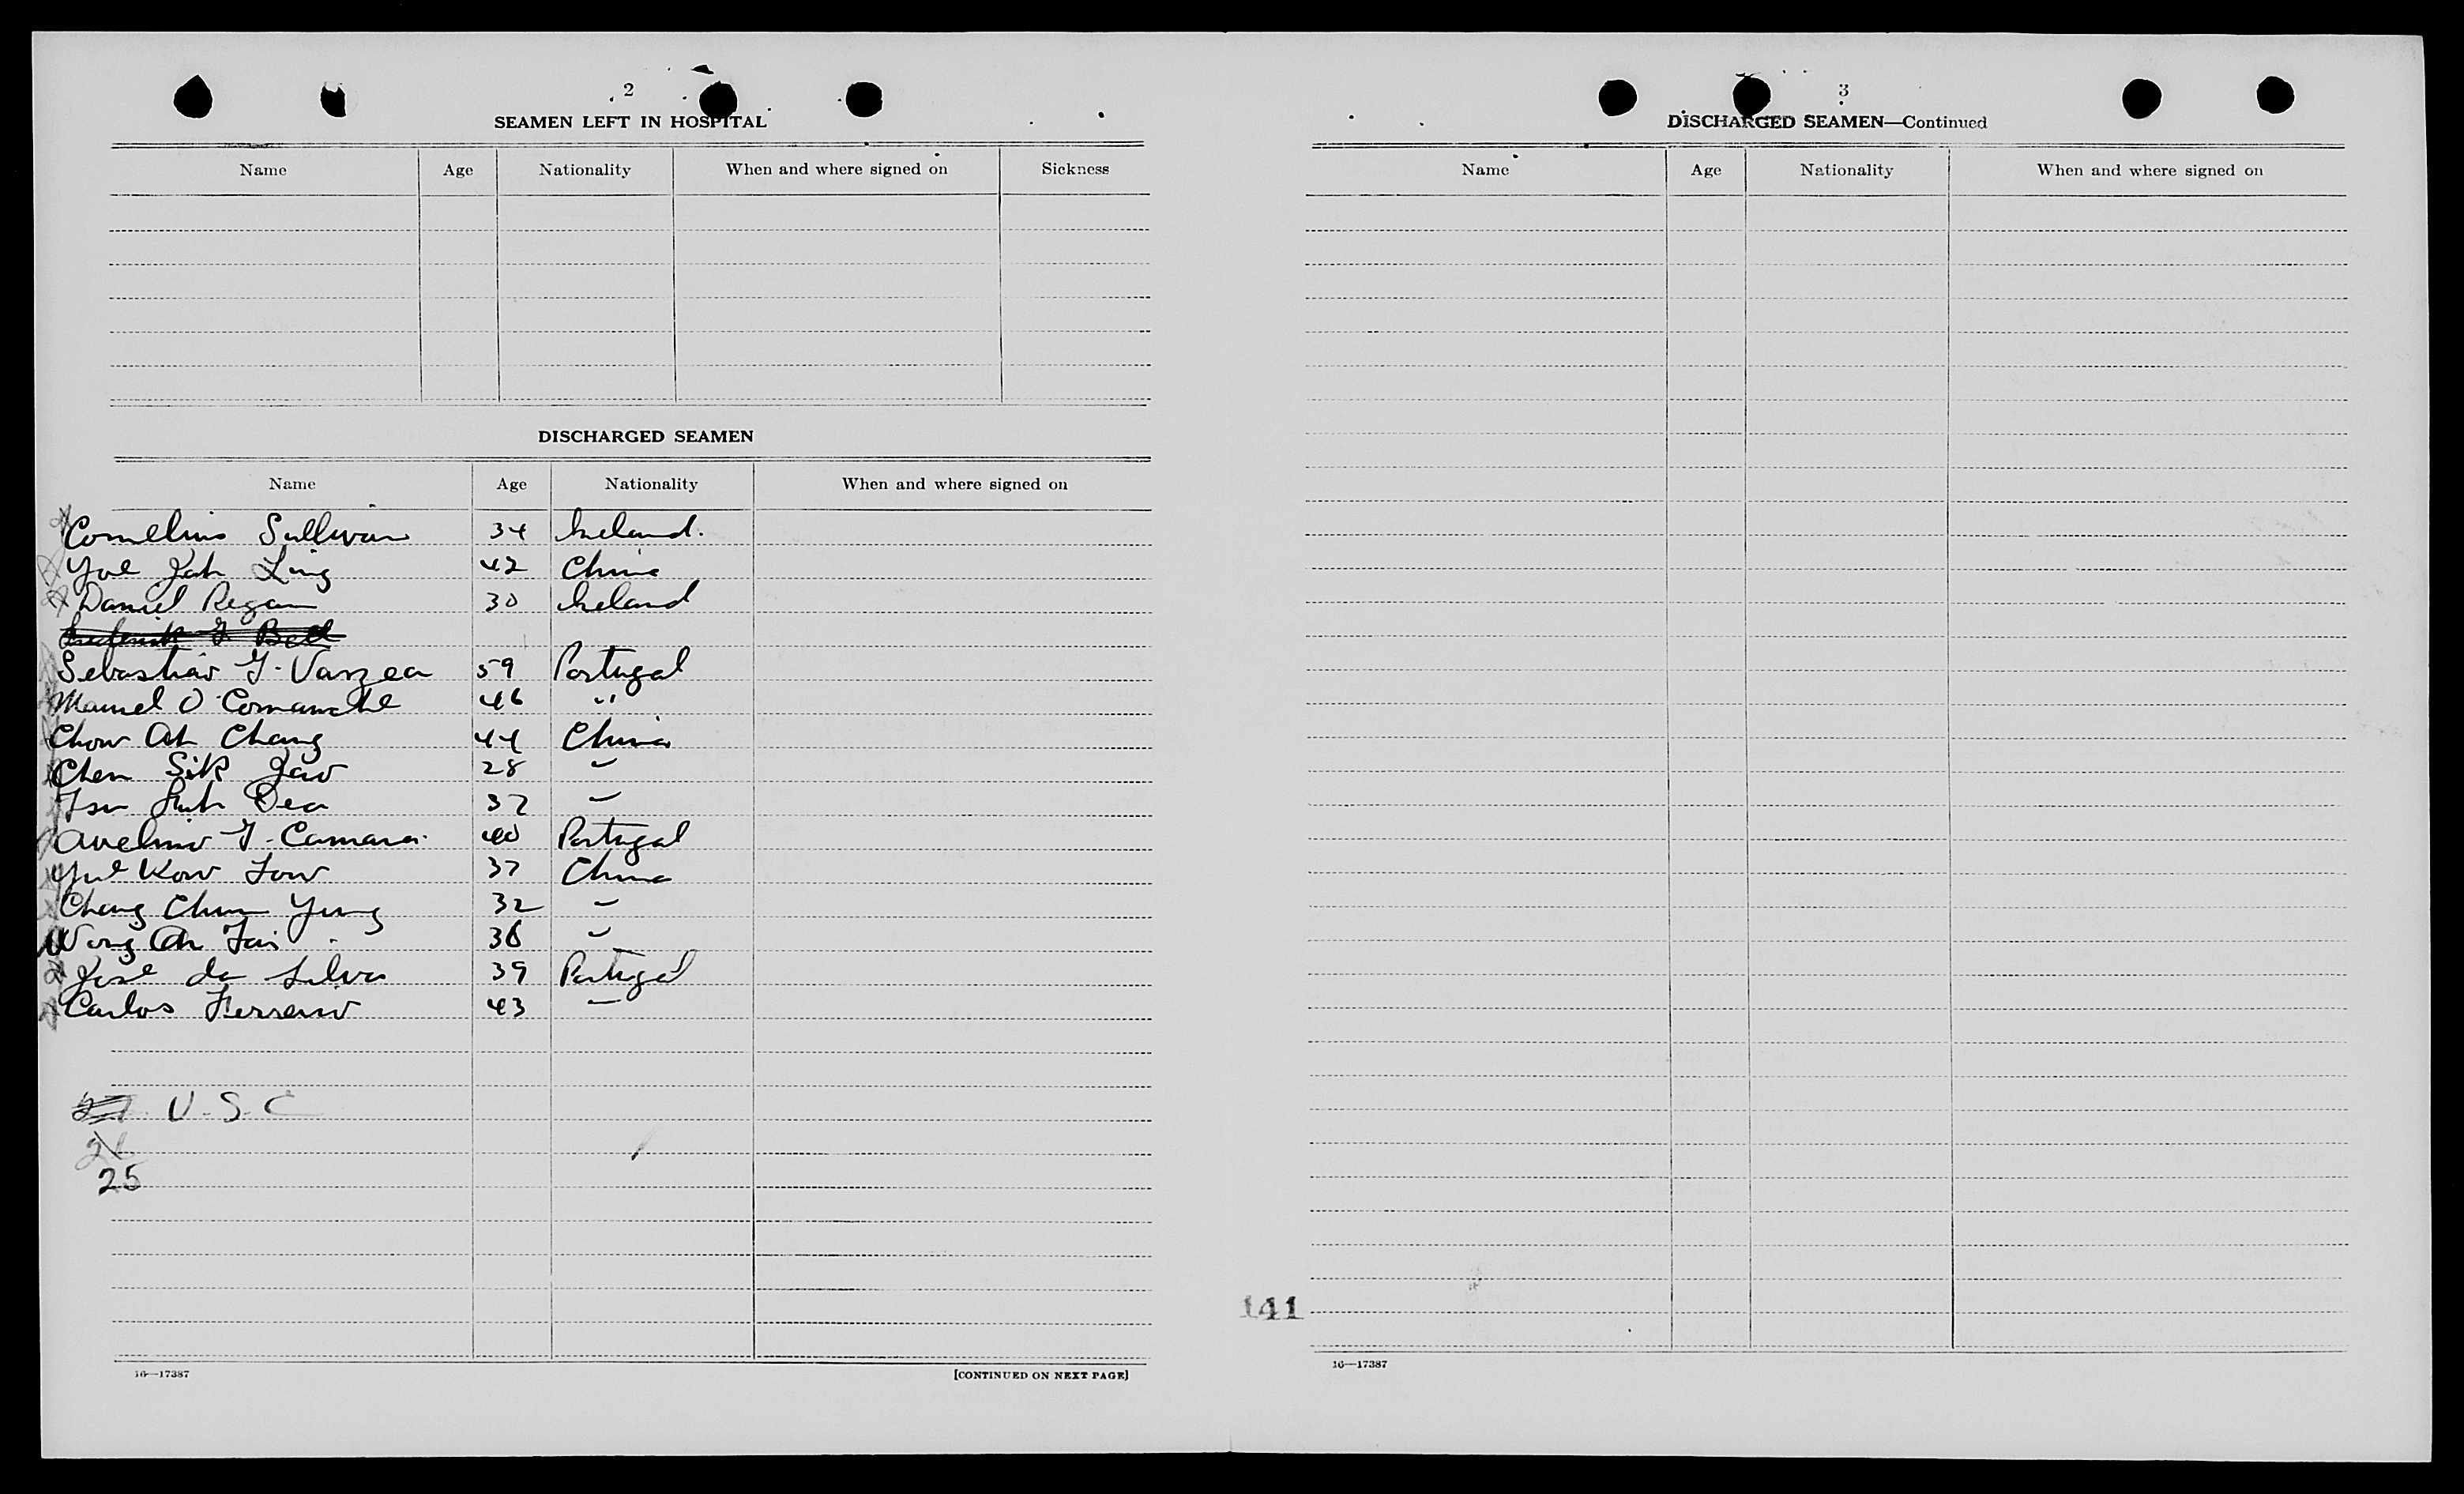 2
SEAMEN LEFT IN HOSPITAL
Name Age Nationality When and where signed on Sickness
DISCHARGED SEAMEN
Name Age Nationality When and where signed on
Cornelius Sullivan 34 Ireland.
Yue Zah Ling 42 China
Daniel Regan 30 Ireland
Frederick J. Bell
Sebastiao G. Varzea 59 Portugal
Manuel O Comanche 46 "
Chow Ah Chang 44 China
Chen Sik 28 "
37 "
Avelino J. Camara 40 Portugal
Kow 37 China
Chang Chun Yung 32 "
Wong Ah Fai 36 "
José da Silva 39 Portugal
Carlos Ferreira 43 "
27 U.S.C
26
25
16—17387
[CONTINUED ON NEXT PAGE]
3
DISCHARGED SEAMEN—Continued
Name Age Nationality When and where signed on
141
16—17387